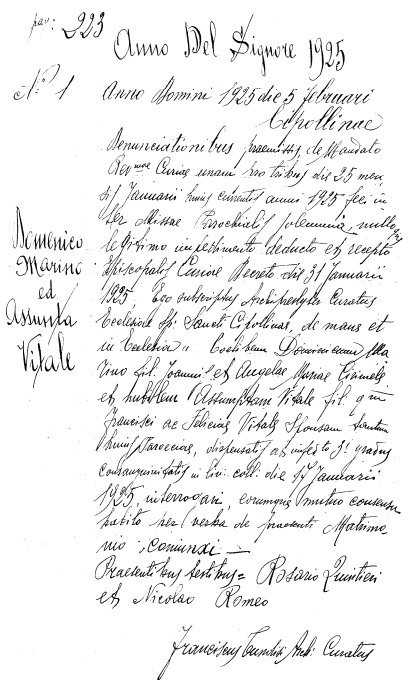 pag: 223
Anno Del Signore 1925
N.º 1
Anno Domini 1925 die 5 februarii
Cipollinae
Denunciationibus praemissis, de Mandato
Rev.mae Curiae unam pro tribus die 25 men
sis Januarii huius currentis anni 1925 feci in
ter Missae Parochialis solemnia, nulloque
legitimo impedimento deducto et recepto
Episcopalis Curiae Decreto die 31 Januarii
1925, Ego subscriptus Archipresbyter Curatus
Ecclesiae Sp: Sancti Cipollinas, de mane et
in Ecclesia " Coelibem Dominicum Ma
rino fil. Joannis et Angelae Mariae
et nubilem Assumptam Vitale fil. qm
Francisci ac Feliciae Vitale Sponsam
huius Paroeciae, dispensatis ab impedto 3i gradus
consanguinitatis in lin: coll: die 17 Januarii
1925, interrogavi, eorumque mutuo consensu
habito per verba de praesenti Matrimo
nio coniunxi —
Praesentibus testibus = Rosario Quintieri
et Nicolao Romeo
Franciscus Arch: Curatus
Domenico
Marino
ed
Assunta
Vitale